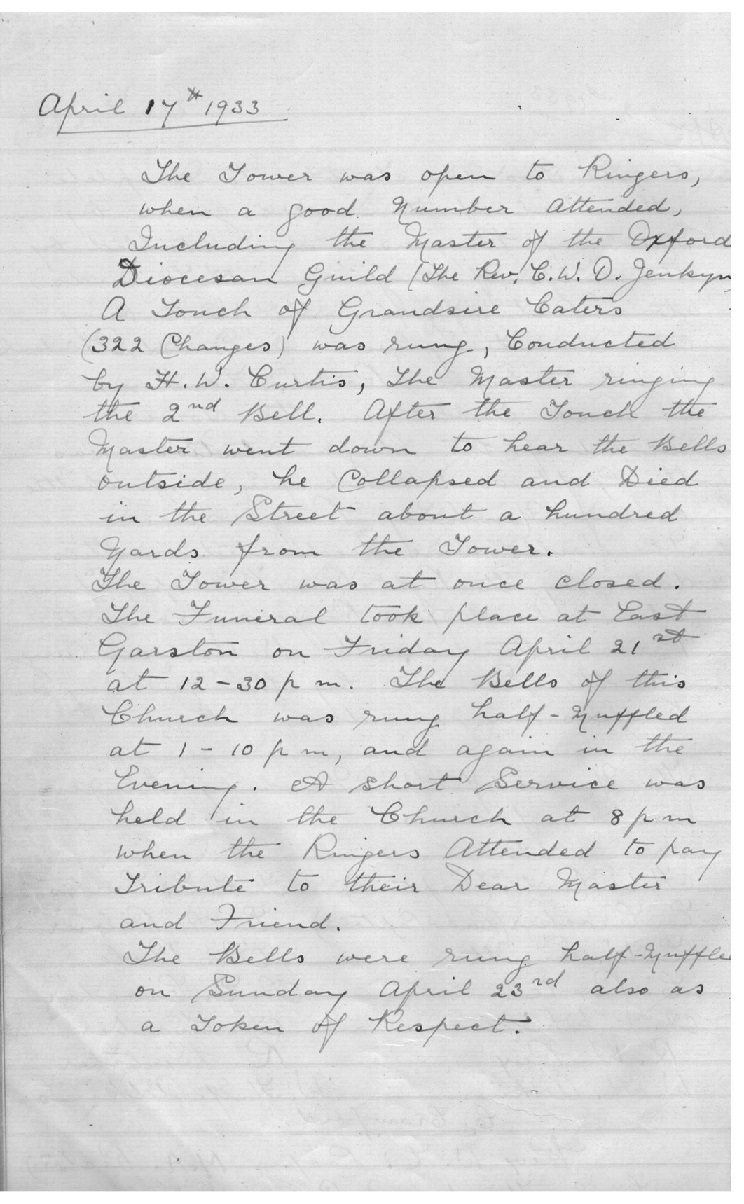 April 17th 1933
The Tower was open to Ringers,
when a good Number Attended,
Including the Master of the Oxford
Diocesan Guild (The Rev. C. W. O. Jenkyn
A Touch of Grandsire Caters
(322 Changes) was rung, Conducted
by H. W. Curtis, The Master ringing
the 2nd Bell. After the Touch the
Master went down to hear the Bells
outside, he Collapsed and Died
in the Street about a hundred
Yards from the Tower.
The Tower was at once closed.
The Funeral took place at East
Garston on Friday April 21st
at 12-30 p m. The Bells of this
Church was rung half-Muffled
at 1-10 p m, and again in the
Evening. A short Service was
held in the Church at 8 p m
when the Ringers Attended to pay
Tribute to their Dear Master
and Friend.
The Bells were rung half-Muffled
on Sunday April 23rd also as
a Token of Respect.